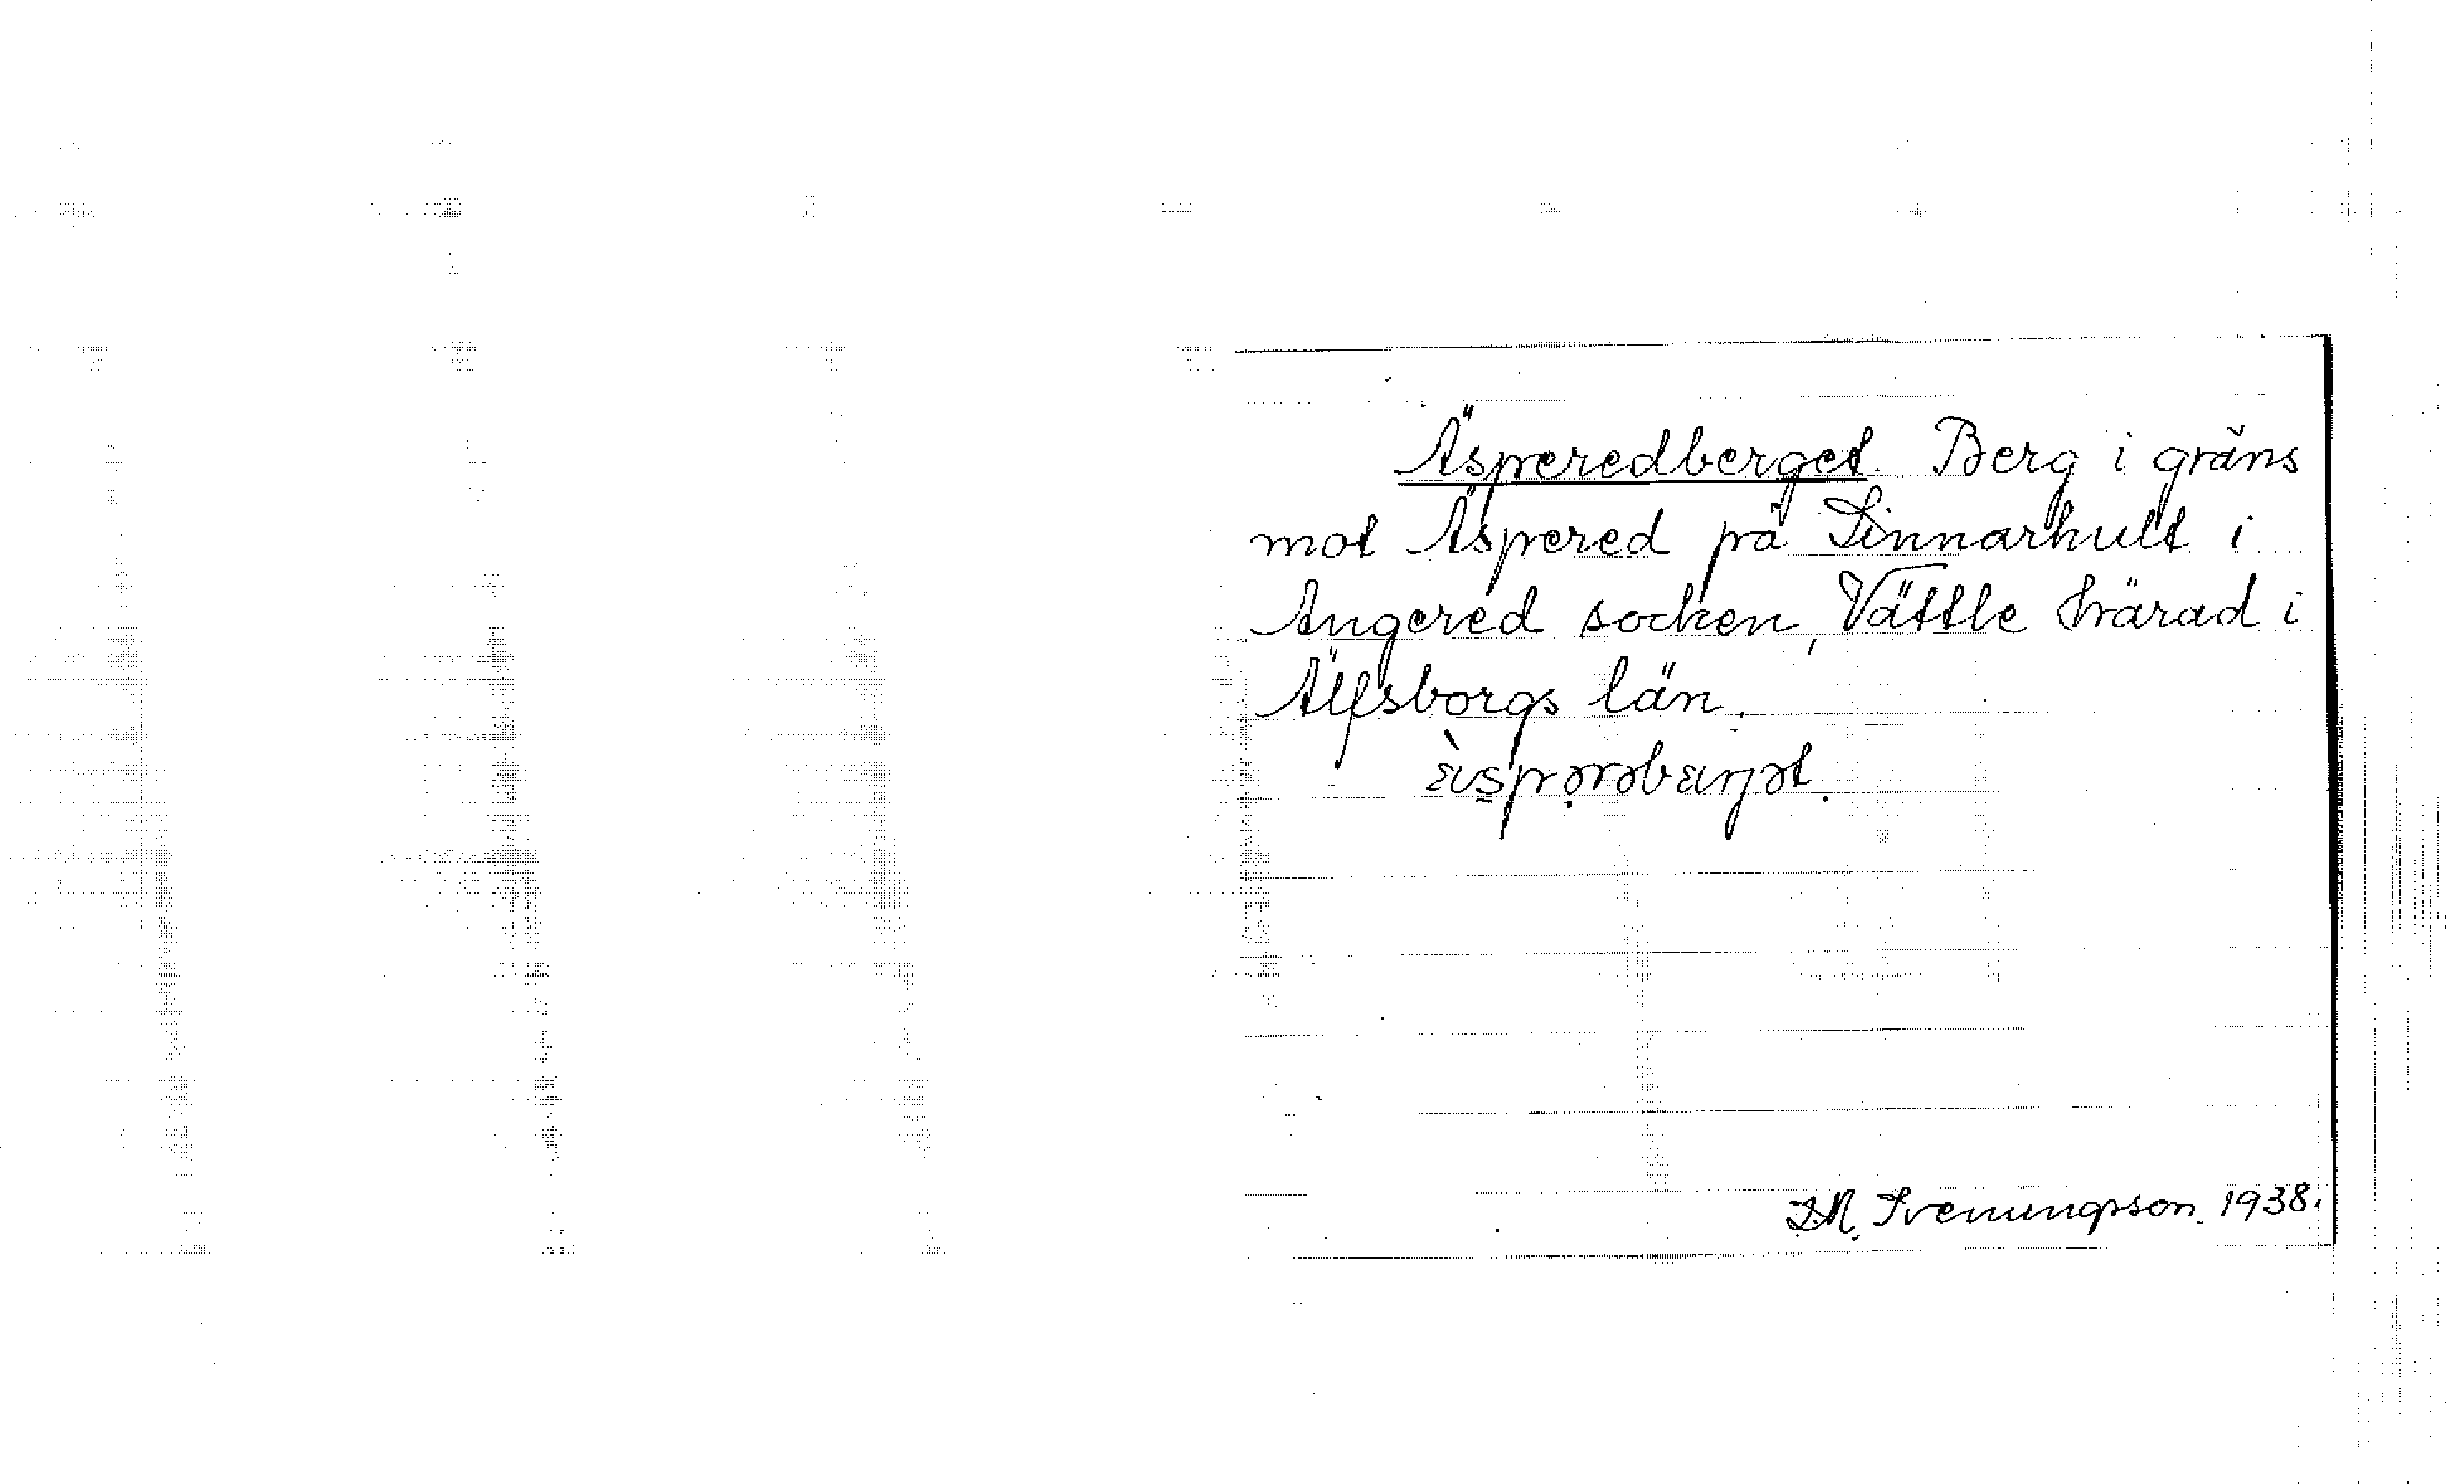 Äsperedberget. Berg i gräns
mot Äspered på Linnarhult i
Angered socken, Vättle härad i
Älfsborgs län.
J.M. Svenungsson. 1938.